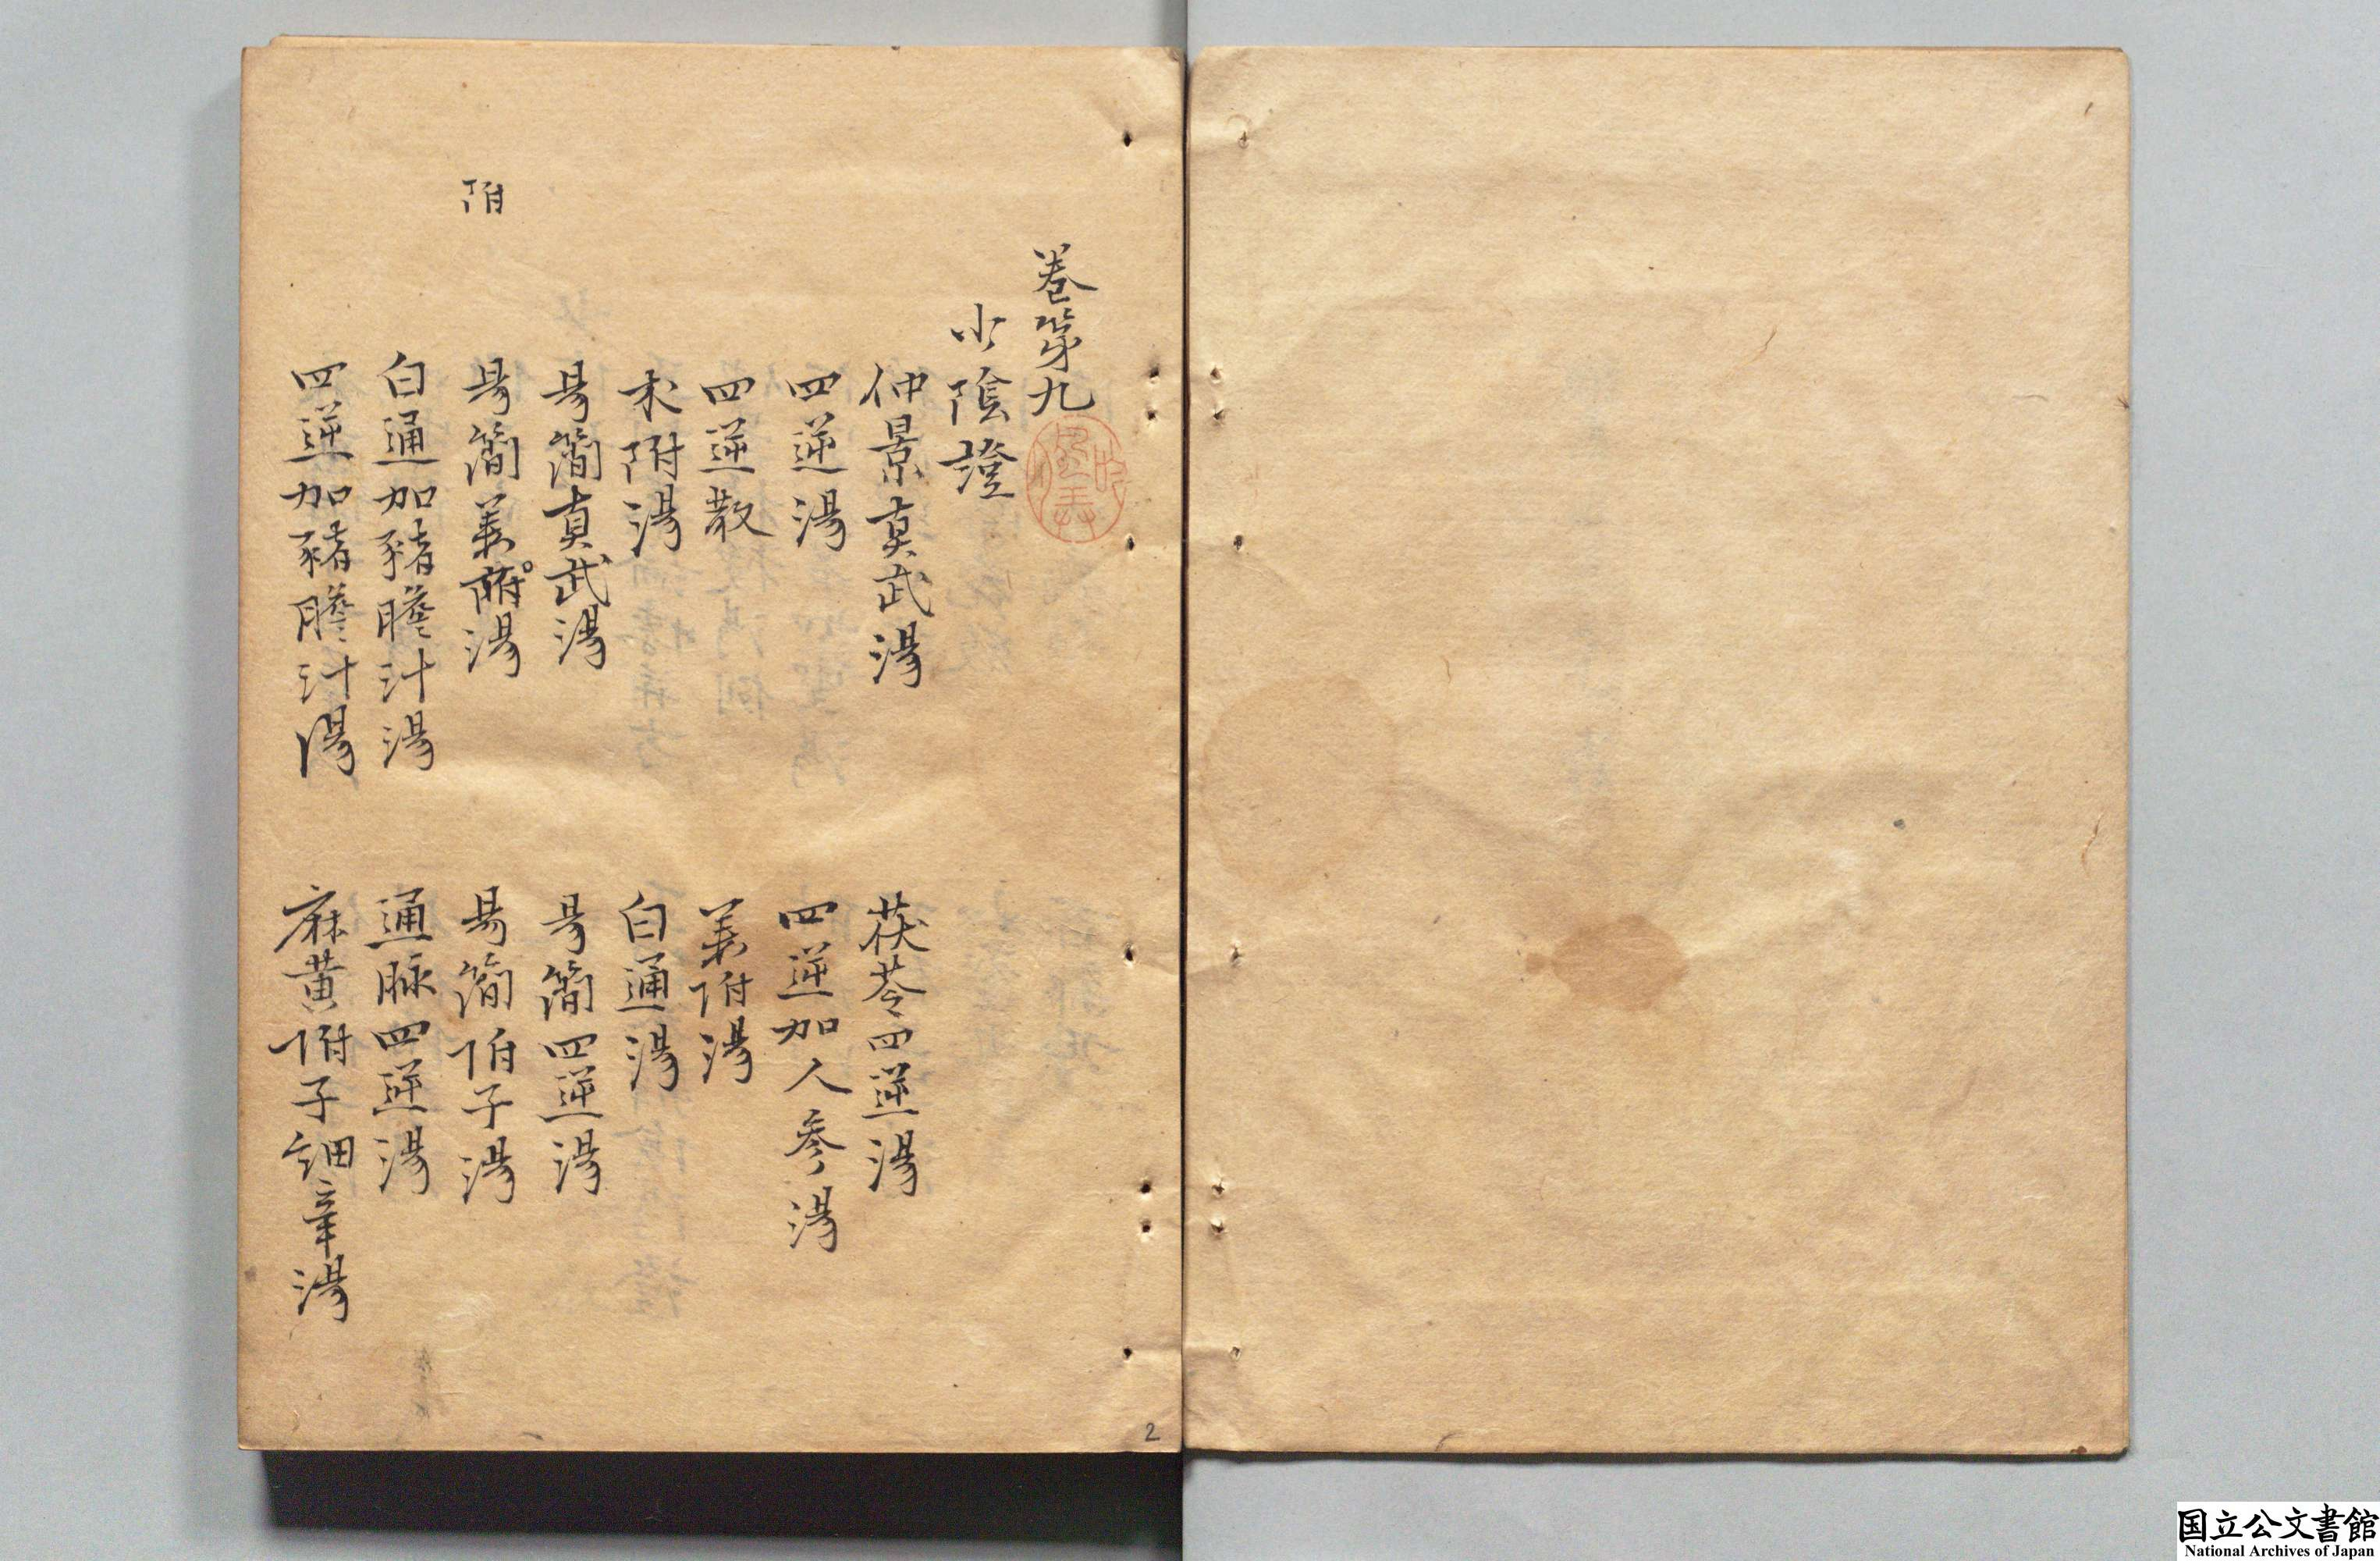 卷第九
小陰證
仲景真武湯　茯苓四逆湯
四逆湯　四逆加人參湯
四逆散　姜附湯
朮附湯　白通湯
易簡真武湯　易簡四逆湯
附
易簡姜附湯　易簡附子湯
白通加豬膽汁湯　通脉四逆湯
四逆加豬膽汁湯　麻黄附子細辛湯
2
国立公文書館
National Archives of Japan